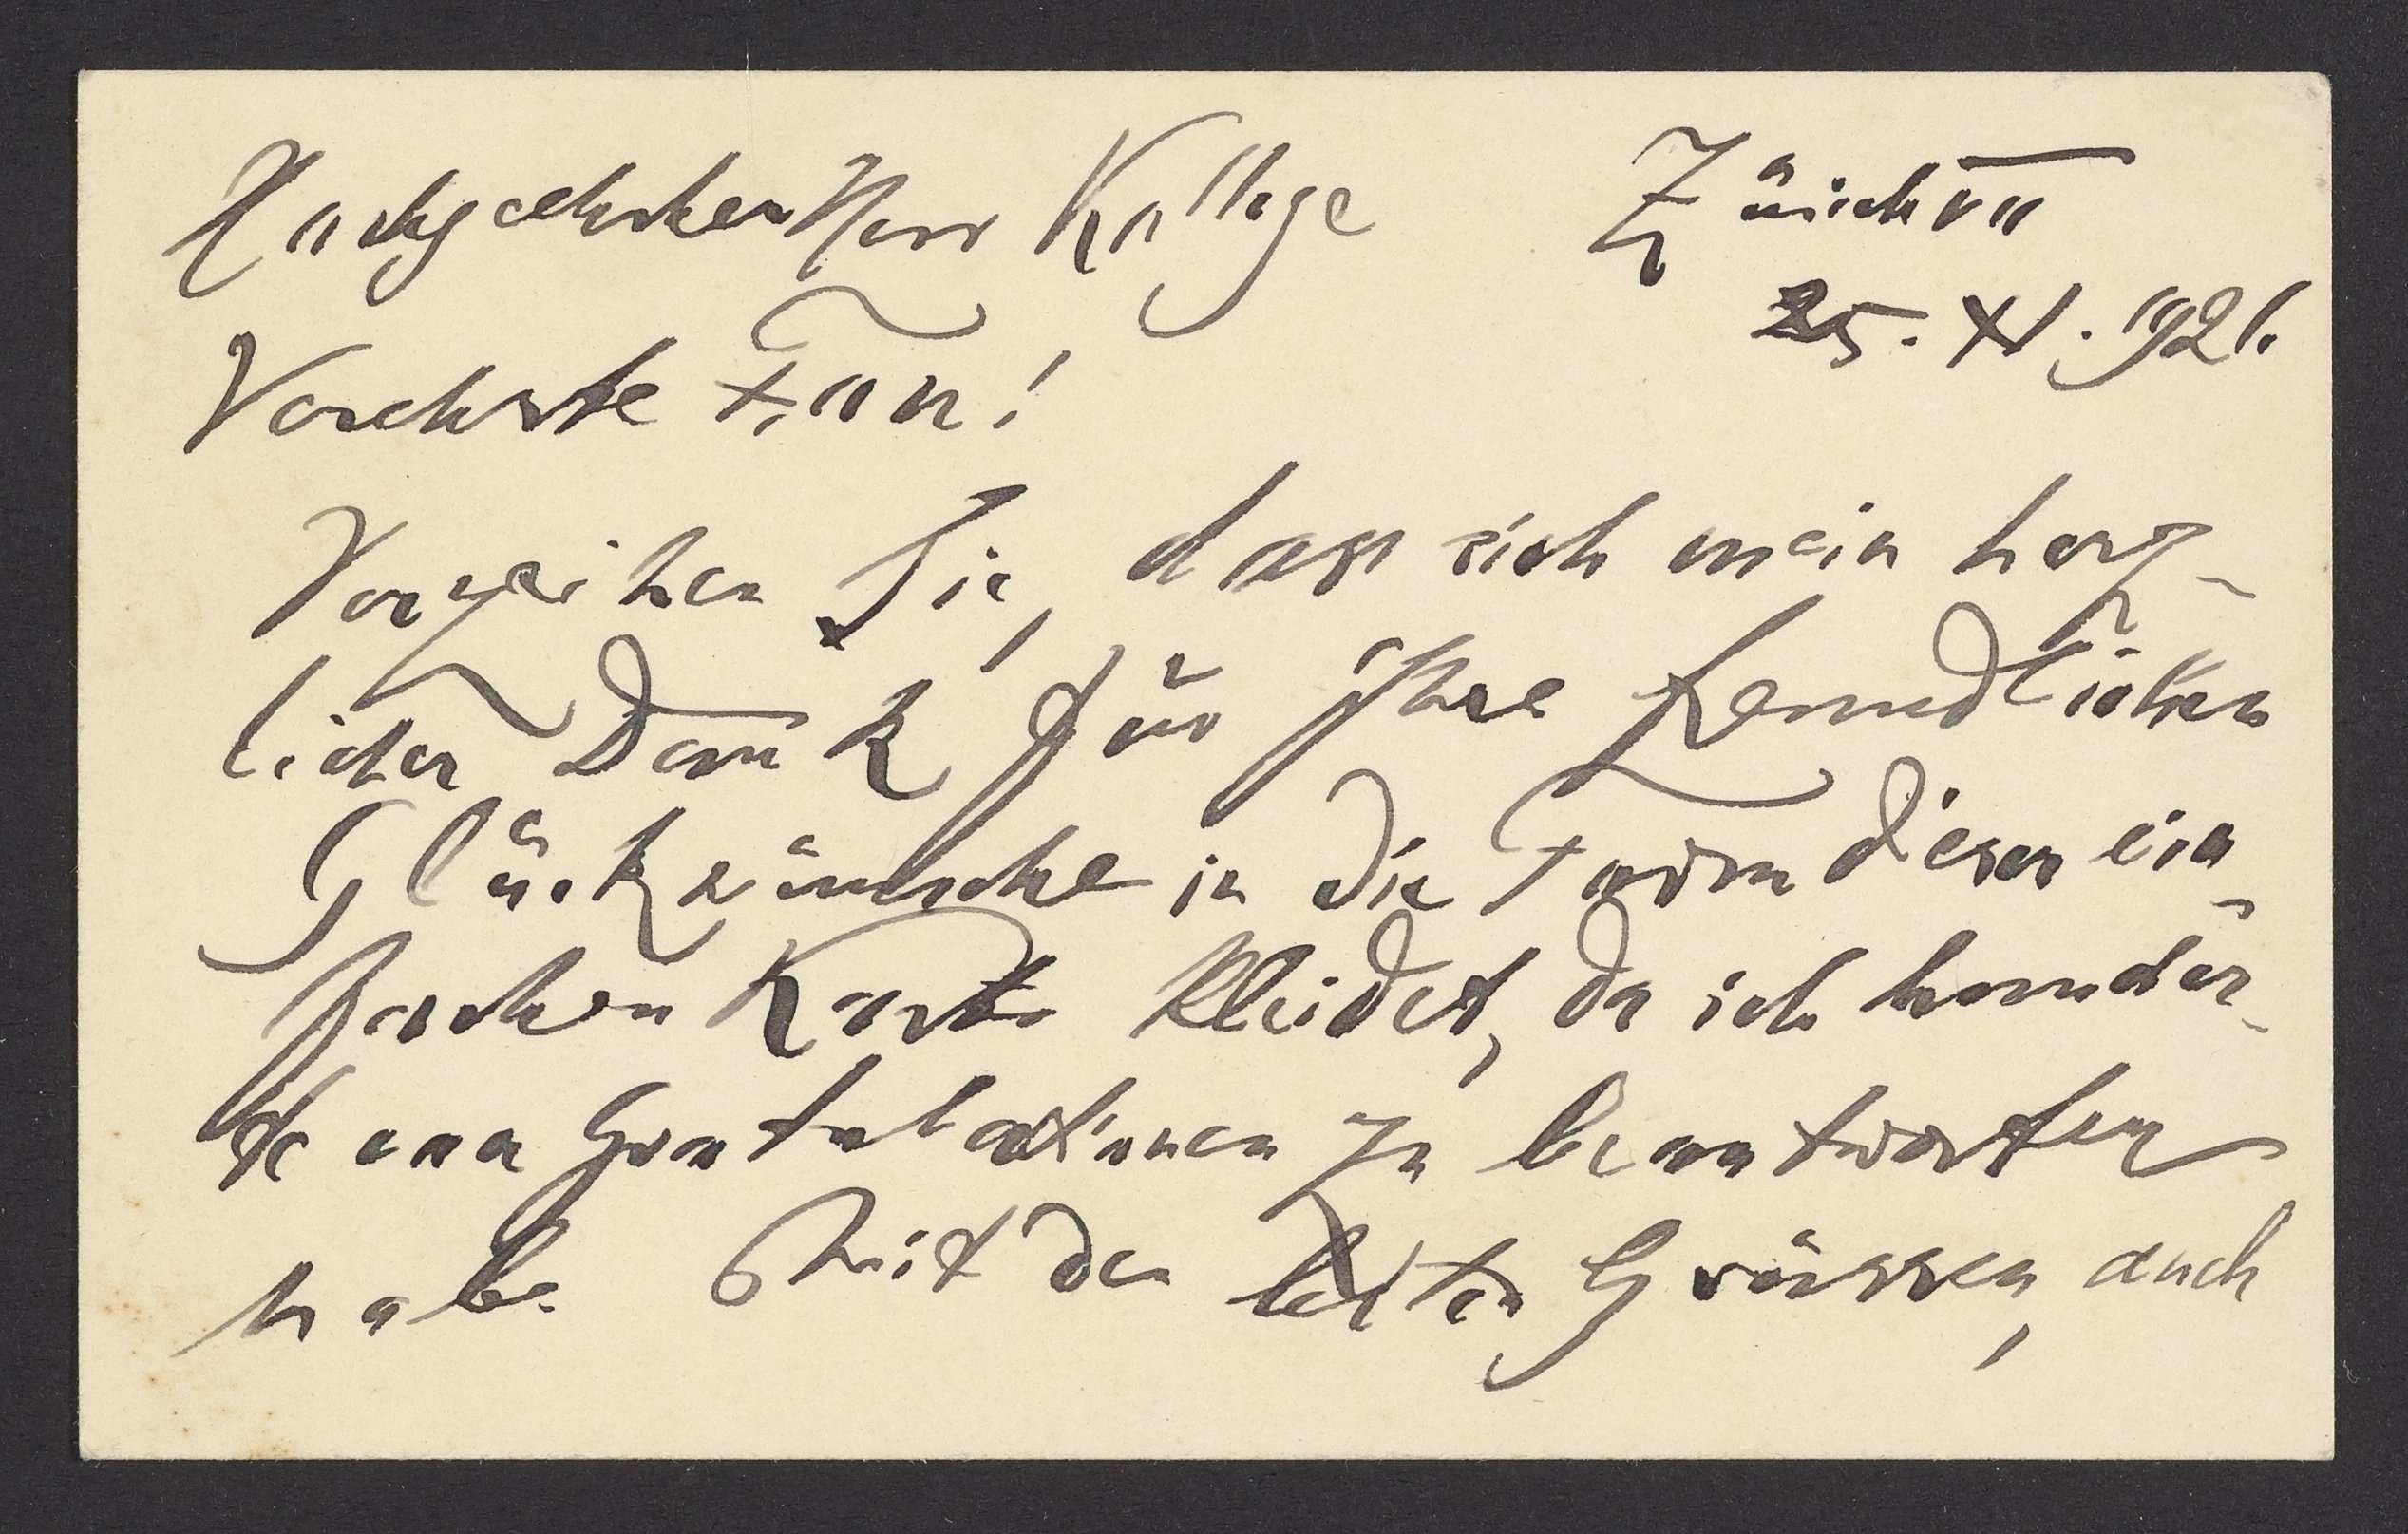 Hochgeehrter Herr Kollege
Zürich VII
25. XI. 1921.
Verehrte Frau!
Verzeihen Sie, dass sich mein herz-
licher Dank für Ihre freundlichen
Glückwünsche in die Form dieser ein-
fachen Karte kleidet, da ich hunder-
te von Gratulationen zu beantworten
habe. Mit den besten Grüssen, auch